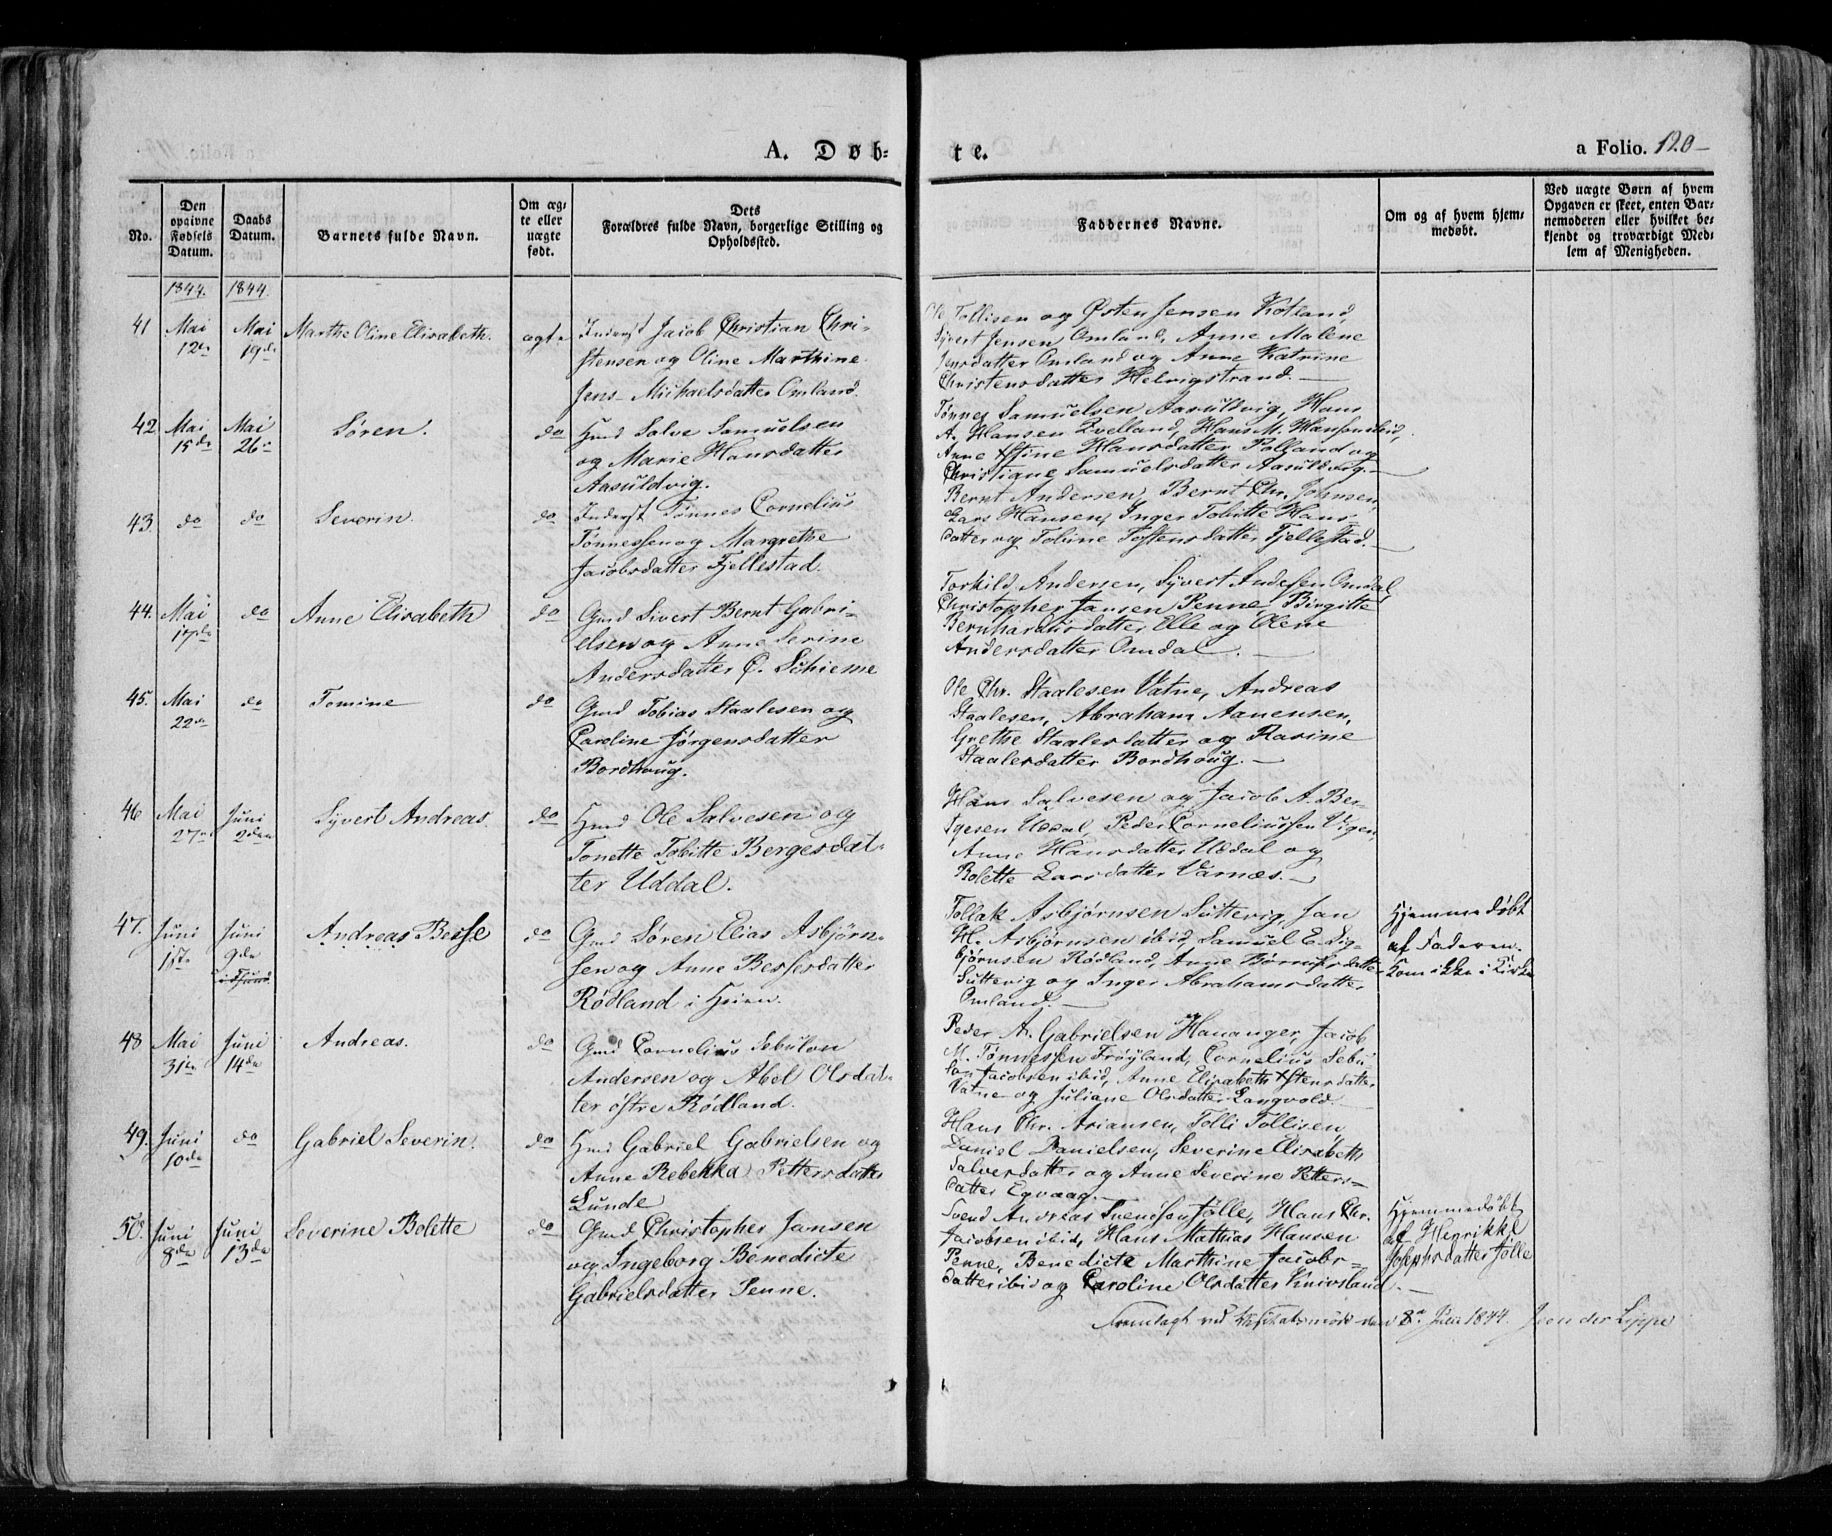 A. Døb-
te.
a Folio. 120
No.
Den
opgivne
Fødsels
Datum.
Daabs
Datum.
Barnets fulde Navn.
Om æg-
te eller
uægte
født.
Dets
Forældres fulde Navn, borgerlige Stilling og
Opholdssted.
Faddernes Navne.
Om og af hvem hjem-
medøbt.
Ved uægte Børn af hvem
Opgaven er skeet, enten Bar-
nemoderen eller hvilket be-
kjendt og troværdigt Med-
lem af Menigheden.
1844. 1844.
41 Mai 12te Mai 19de Marthe Oline Elisabeth. ægte
Inderst Jacob Christian Chri-
stensen og Oline Marthine
Jens- Michaelsdatter Omland.
Ole Tollisen og Østen Jensen Kotland,
Syvert Jensen Omland, Anne Malene
Jensdatter Omland og Anne Katrine
Christensdatter Helvigstrand.
42 Mai 15de Mai 26 Søren. do
Hmd Salve Samuelsen
og Marie Hansdatter
Aasuldvig.
Tønnes Samuelsen Aasuldvig, Hans
A. Hansen Qvelland, Hans M. Hansen ibid,
Anne Xstine Hansdatter Qvelland og
Christiane Samuelsdatter Aasuldvig.
43. do do Severin. do
Inderst Tønnes Cornelius
Tønnessen og Margrethe
Jacobsdatter Fjellestad.
Bernt Andersen, Bernt Chr. Johnsen,
Lars Hansen, Inger Tobitte Hans-
datter og Tobine Tostensdatter Fjellestad.
44. Mai 17de do Anne Elisabeth do
Gmd Sivert Bernt Gabri-
elsen og Anne Serine
Andersdatter Ø. Schieme
Torkild Andersen, Syvert Andersen Omdal,
Christopher Jansen Penne, Birgitte
Bernhardusdatter Elle og Olene
Andersdatter Omdal.
45. Mai 22de do Tomine do
Gmd Tobias Staalesen og
Caroline Jørgensdatter
Bordhoug.
Ole Chr. Staalesen Vatne, Andreas
Staalesen, Abraham Aanensen,
Grethe Staalesdatter og Rasine
Staalesdatter Bordhoug.
46 Mai 27 Juni 2den Syvert Andreas. do
Hmd Ole Salvesen og
Tonette Tobitte Bergesdat-
ter Uddal.
Hans Salvesen og Jacob A. Ber-
gesen Uddal, Peder Corneliussen Vigen,
Anne Hansdatter Uddal og
Bolette Larsdatter Varnæs.
47. Juni 1ste Juni 9de Andreas Berse do
Gmd Søren Elias Asbjørn-
sen og Anne Bersesdatter
Rødland i Heien.
Tollak Asbjørnsen Sottevig, Jan
H. Asbjørnsen ibid, Samuel E. Sig-
bjørnsen Rødland, Anne datter
Sottevig og Inger Abrahamsdatter
Omland.
Hjemmedøbt
af Faderen.
Kom ikke i Kirke
48 Mai 31te Juni 14de Andreas. do
Gmd Cornelius Sebulon
Andersen og Abel Olsdat-
ter østre Rødland.
Peder A. Gabrielsen Hananger, Jacob
M. Tønnessen Frøyland, Cornelius Sebu-
lon Jacobsen ibid, Anne Elisabeth Xstensdatter
Vatne og Juliane Olsdatter Langvold.
49. Juni 10de do Gabriel Severin. do
Hmd Gabriel Gabrielsen og
Anne Rebekka Pettersdatter
Lunde
Hans Chr. Ariansen, Tolli Tollisen,
Daniel Danielsen, Severine Elisabeth
Salvesdatter og Anne Severine Petters-
datter Egvaag.
50. Juni 8de Juni 13de Severine Bolette do
Gmd Christopher Jansen
og Ingeborg Benedicte
Gabrielsdatter Penne.
Svend Andreas Svendsen Jølle, Hans Chr.
Jacobsen ibid, Hans Mathias Hansen
Penne, Benedicte Marthine Jacobs-
datter ibid og Caroline Olsdatter Knivsland.
Hjemmedøbt
af Henrikke
Josephsdatter Jølle
Fremlagt ved Visitatsmøde den 8de Juli 1844. J von der Lippe